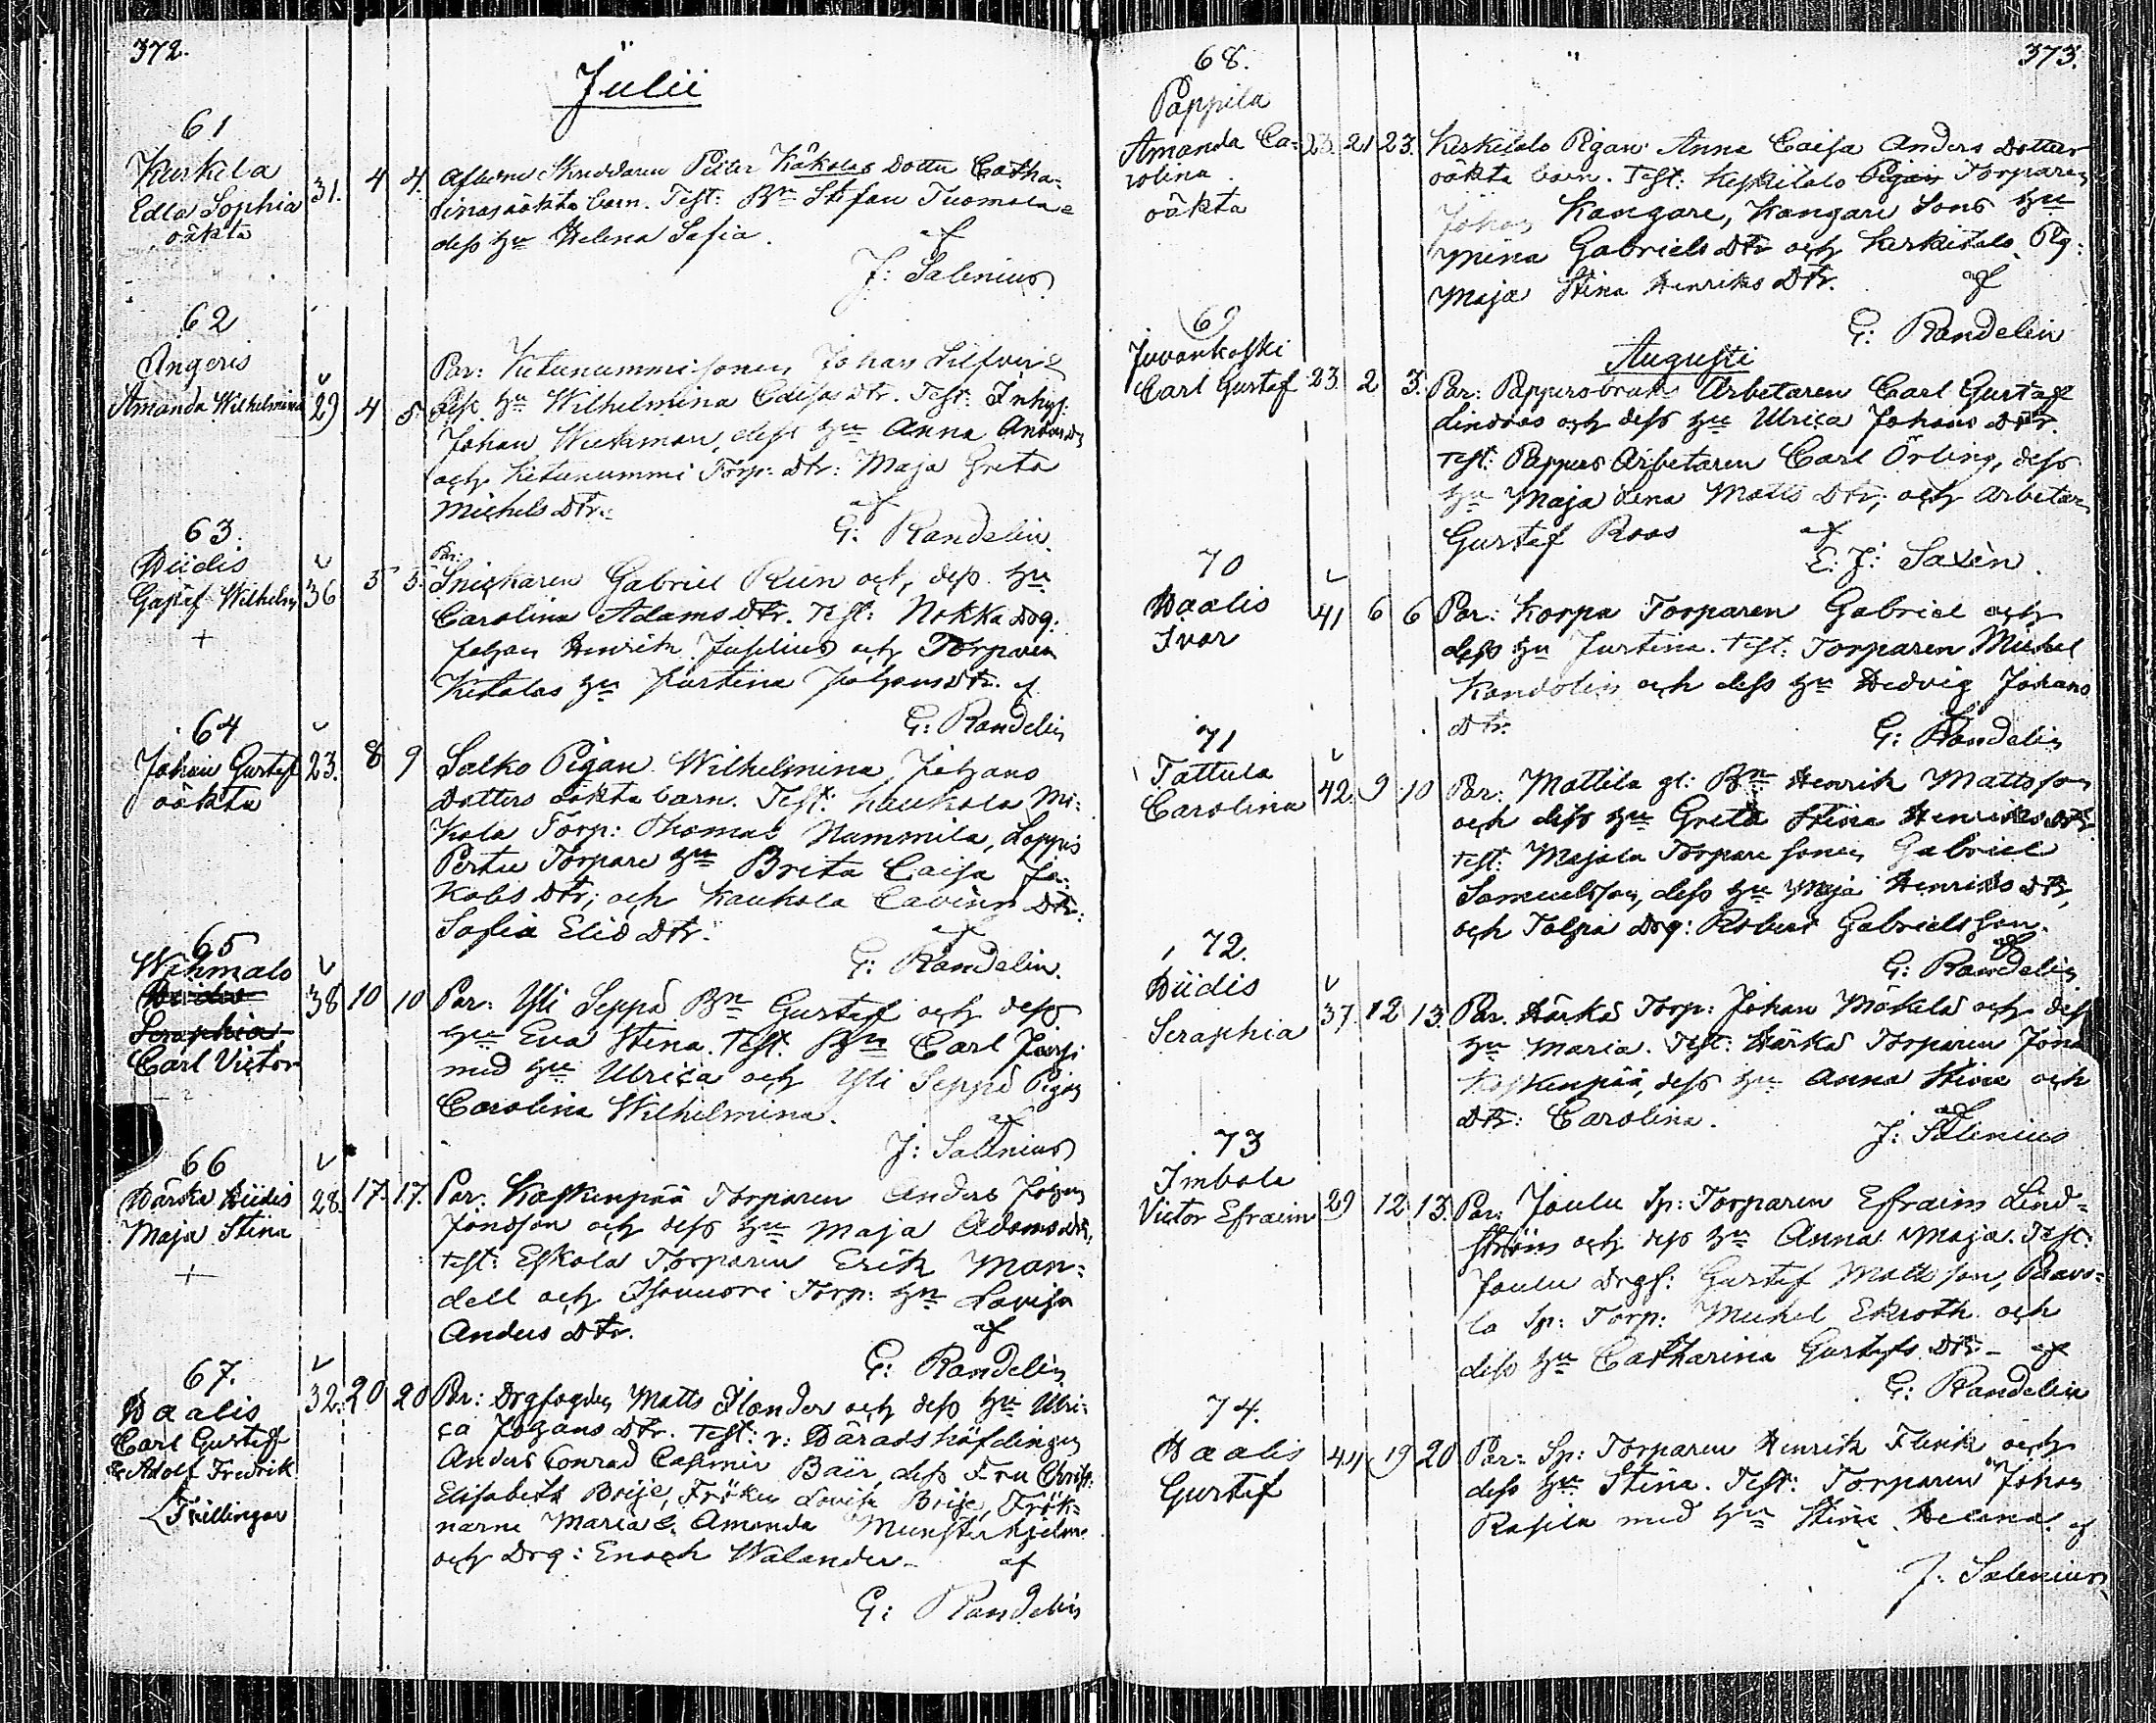 372.
Julii
61
Kurkela
Edla Sophia
oäkta
31. 4 4.
Aflidne Skreddaren Peter Käkolas Dotter Catha=
rinas oäkta barn. Test: Bn Stefan Tuomola &
dess hu Helena Sofia.
af
J: Salenius
62
Angeris
Amanda Wilhelmina
29 4 5
Par: Ketunummi sonen Johan Silfver &
dess hu Wilhelmina Dtr. Test: Inhys:
Johan Wickman, dess hu Anna Anders D
och Ketunummi Torp: dtr: Maja Greta
Michels Dtr.
af
G: Randelin.
63.
Hiidis
Gustaf Wilhelm
+
36 5 5.
Par:
Snickaren Gabriel Rein och dess hu
Carolina Adams Dtr. Test: Nokka Drg.
Johan Henrik Juselius och Torparen
Ketolas hu Justina Johans Dtr. af
G: Randelin
64
Johan Gustaf
oäkta
23. 8 9
Salko Pigan Wilhelmina Johans
Dotters oäkta barn. Test: Kaukola Mi=
kola Torp: Thomas Nummila, Loppis
Perttu Torpare hu Brita Caisa Ja=
kobs Dtr; och Kaukola Dtr:
Sofia Elis Dtr.
af
G: Randelin.
65
Wihmalo
Seraphia
Carl Victor
38 10 10
Par: Yli Seppä Bn Gustaf och dess
hu Eva Stina. Test. Bn Carl Jussi
med hu Ulrica och Yli Seppä Pigan
Carolina Wilhelmina.
af
J: Salenius
66
Härkä Hiidis
Maja Stina
+
28. 17. 17.
Par. Koskenpää Torparen Anders Johan
Jonsson och dess hu Maja Adams dtr,
test: Eskola Torparen Erik Man=
dell och Isovuori Torp: hu Lovisa
Anders Dtr.
af
G: Randelin
67.
Haalis
Carl Gustaf
& Adolf Fredrik
Tvillingar
32. 20 20
Par: Drgfogden Matts Ilander och dess hu Ulri=
ca Johans Dtr. Test: v: Häradshöfdingen
Anders Conrad Casimir Bäir, dess Fru Christ:
Elisabeth Boije, Fröken Lovisa Boije, Frök=
narne Maria & Amanda Munsterhjelm
och Drg: Enoch Walander.
af
G: Randelin
373.
68.
Pappila
Amanda Ca=
rolina
oäkta
23. 21 23.
Kerkilalo Pigan Anna Caisa Anders Dotters
oäkta barn. Test: Kerkilalo Pigan Torparen
Johan Kangare, Kangare Sons hu
Mina Gabriels Dtr och Kerkilalo Pig:
Maja Stina Henriks Dtr.
af
G: Randelin
Augusti
69
Juvankoski
Carl Gustaf
23. 2 3.
Par: Pappersbruks Arbetaren Carl Gustaf
Lindroos och dess hu Ulrica Johans Dtr.
Test: Pappers Arbetaren Carl Örling, dess
hu Maja Lena Matts Dtr; och Arbetar
Gustaf Roos
af
E. J: Saxèn.
70
Haalis
Ivar
41 6 6
Par: Korpa Torparen Gabriel och
dess hu Justina. Test: Torparen Michel
Kandolin och dess hu Hedvig Johans
Dtr.
G: Randelin
71
Tattula
Carolina
42. 9 10
Par: Mattila gl: Bn Henrik Mattsson
och dess hu Greta Stina Henriks Dtr.
test: Majala Torpare sonen Gabriel
Samuelsson, dess hu Maja Henriks Dtr,
och Talpia Drg: Robert Gabrielsson.
af
G: Randelin
72.
Hiidis
Seraphia
37. 12 13.
Par. Härkä Torp: Johan Mäkelä och dess
hu Maria. Test: Härkä Torparen Jona
Koskenpää, dess hu Anna Stina och
Dtr: Carolina.
af
J: Salenius
73
Imbala
Victor Efraim
29 12 13.
Par: Joulu Sp: Torparen Efraim Lind=
ström och dess hu Anna Maja. Test:
Joulu Drgs: Gustaf Mattsson, Paavo=
la Sp: Torp: Michel Ekroth och
dess hu Catharina Gustafs Dtr. af
G: Randelin
74.
Haalis
Gustaf
44 19 20
Par: Sp: Torparen Henrik Flink och
dess hu Stina. Test: Torparen Johan
Rasila med hu Stina Helena. af
J: Salenius